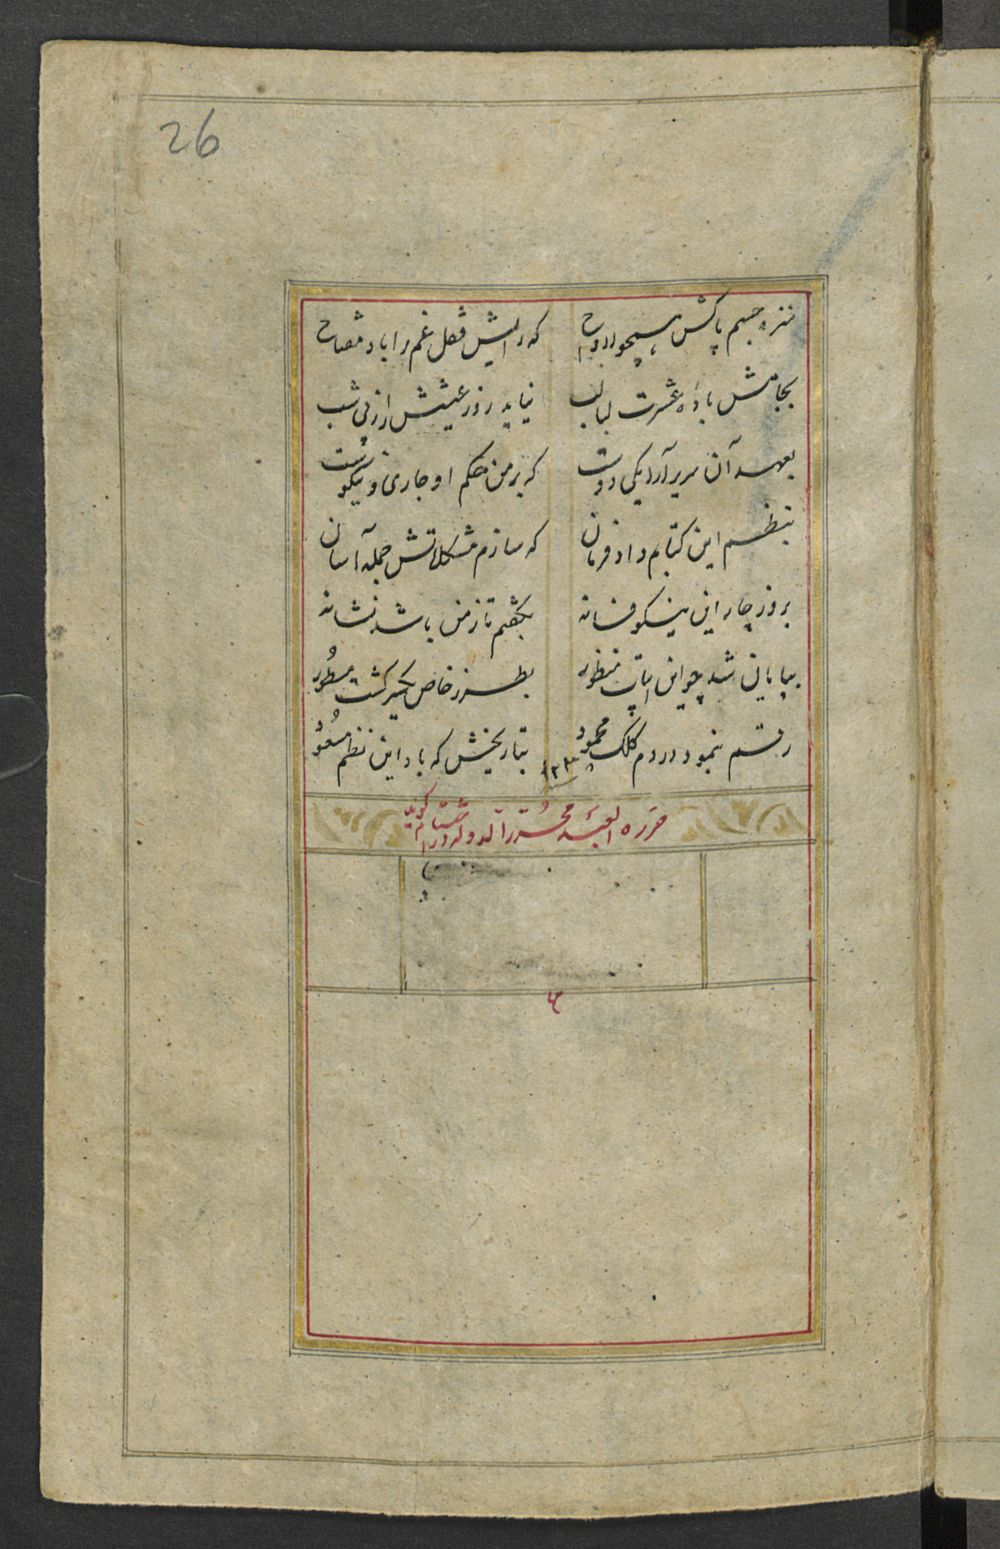 26
منزه جسم پاکش همچو ارواح که رایش قفل غم را باد مفتاح
بجامش باده عشرت لبالب نیاید روز عیشش از پی شب
بعهد آن سریر آرای کی دوست که بر من حکم او جاری و نیکوست
بنظم این کتابم داد فرمان که سازم مشکلاتش جمله آسان
بروز چار این نیکو فسانه بگفتم تا ز من باشد نشانه
بپایان شد چو این ابیات منظور بطرز خاص یکسر گشت مسطور
رقم بنمود در دم کلک محمود بتاریخش که باد این نظم مسعود
۱۲۳
حرره العبد محرر الدوله